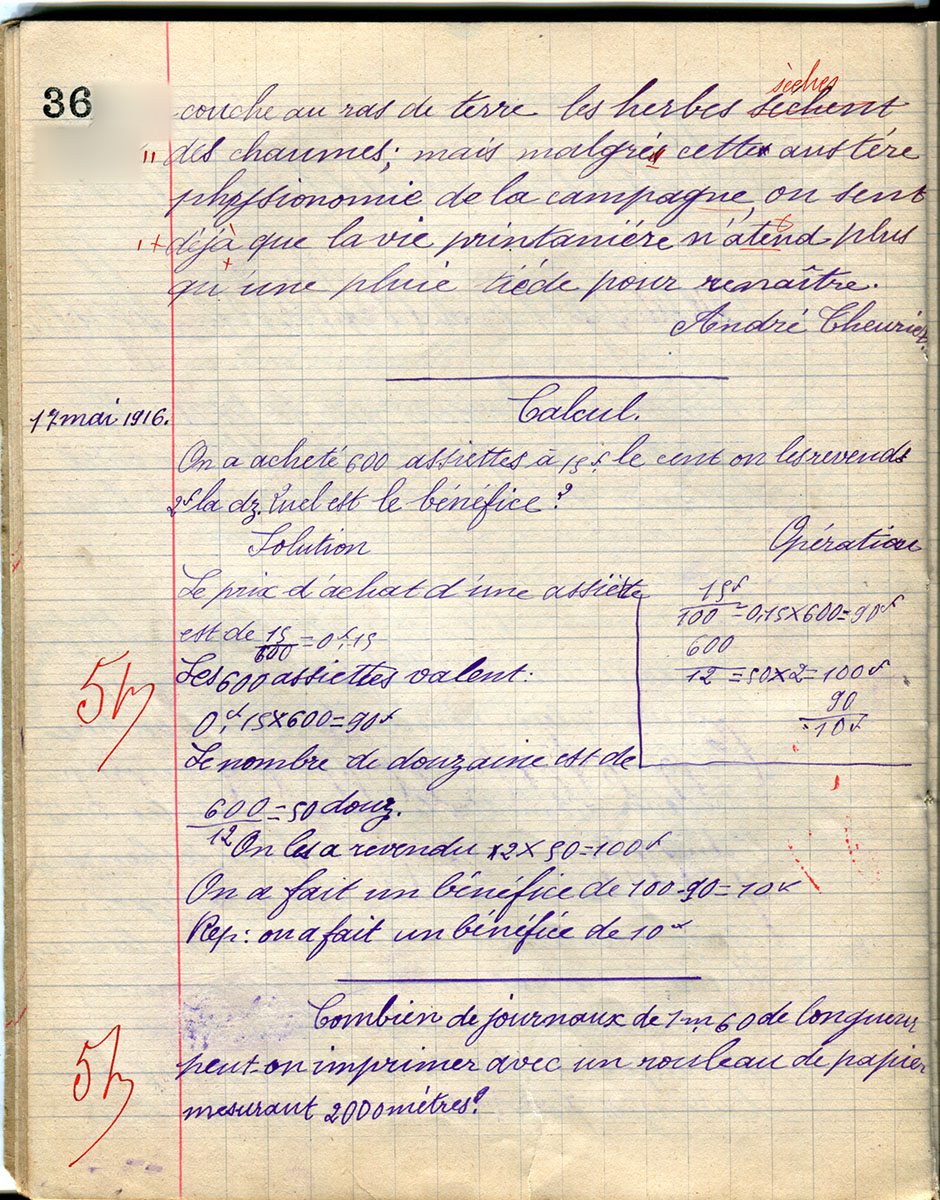 36
sèches
couche au ras de terre les herbes sèchent
des chaumes; mais malgrés cette austère
physionomie de la campagne, on sent
déjà que la vie printanière n'atend plus
qu'une pluie tiède pour renaître.
André Theuriet.
17 mai 1916.
Calcul.
On a acheté 600 assiettes à 15f. le cent on les revends
2f la dz. Quel est le bénéfice?
Solution
Opération
Le prix d'achat d'une assiette
est de 15/600 = 0f,15
Les 600 assiettes valent.
0f,15 x 600 = 90f
Le nombre de douzaine est de
600/12 = 50 douz.
On les a revendu 2 x 50 = 100f
On a fait un bénéfice de 100 - 90 = 10f
Rep: on a fait un bénéfice de 10f
15f/100 = 0,15 x 600 = 90f
600/12 = 50 x 2 = 100f
90
10f
Combien de journaux de 1m,60 de longueur
peut-on imprimer avec un rouleau de papier
mesurant 2000 mètres?